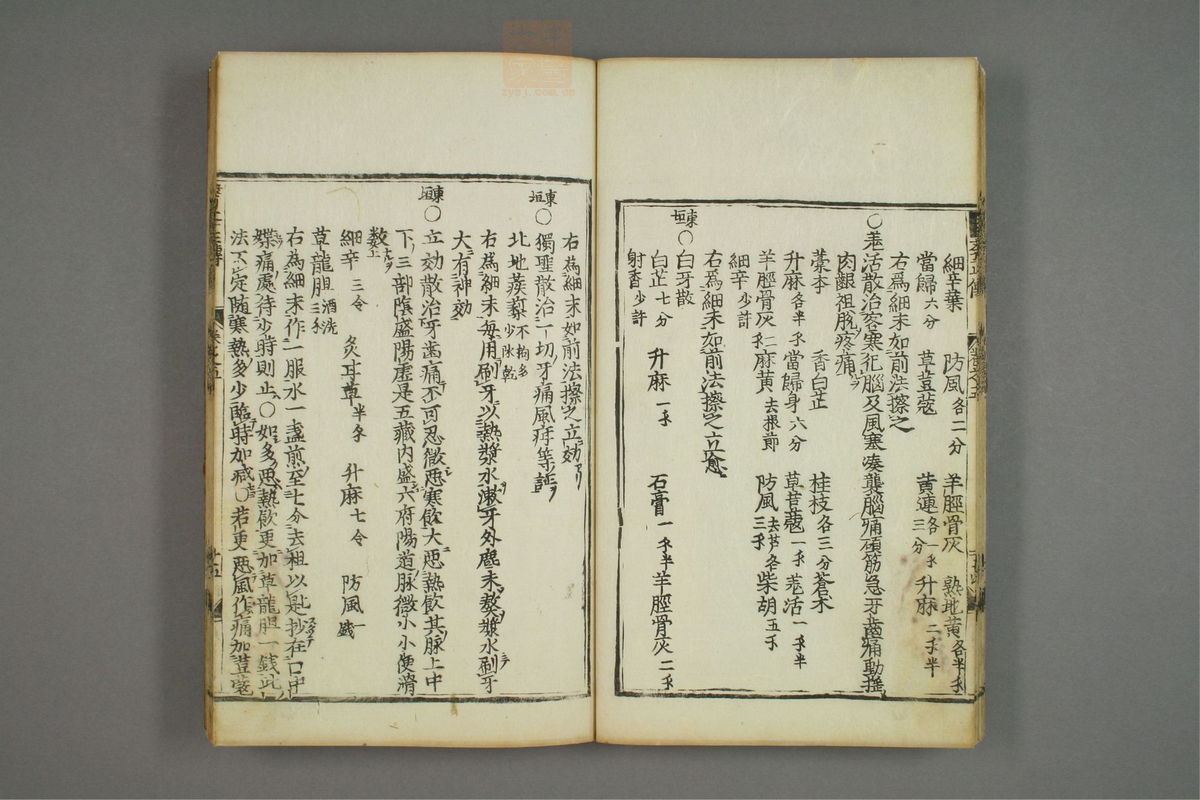 細辛葉 防風各二分 羊脛骨灰 熟地黃各半𠂆
當歸六分 草荳蔻 黃連各一𠂆三分 升麻二𠂆半
右爲細末如前法擦之
○羗活散治客寒犯腦及風寒湊襲腦痛項筋急牙齒痛動搖
肉齦袒脫疼痛
藁本 香白芷 桂枝各三分 蒼木
升麻各半𠂆 當歸身六分 草荳蔻一𠂆 羗活一𠂆半
羊脛骨灰二𠂆 麻黃去根節 防風三𠂆去芦各 柴胡五𠂆
細辛少許
右爲細末如前法擦之立愈
東垣○白牙散
白芷七分 升麻一𠂆 石膏一𠂆半 羊脛骨灰二𠂆
射香少許
右爲細末如前法擦之立効
東垣○獨聖散治一切牙痛風疳等証
北地疾藜不拘多少陳乾
右爲細末每用刷牙以熱漿水漱牙外麁末熬漿水刷牙
大有神効
東垣○立効散治牙齒痛不可忍微惡寒飲大惡熱飲其脉上中
下三部陰盛陽虛是五藏内盛六府陽道脉微小小便滑
數
細辛三令 炙耳草半𠂆 升麻七令 防風一戔
草龍胆酒洗三𠂆
右爲細末作一服水一盞煎至七分去粗以匙抄在口中
煠痛處待少時則止○如多惡熱飲更加草龍胆一錢此
法不定随寒熱多少臨時加減○若更惡風作痛加荳蔻